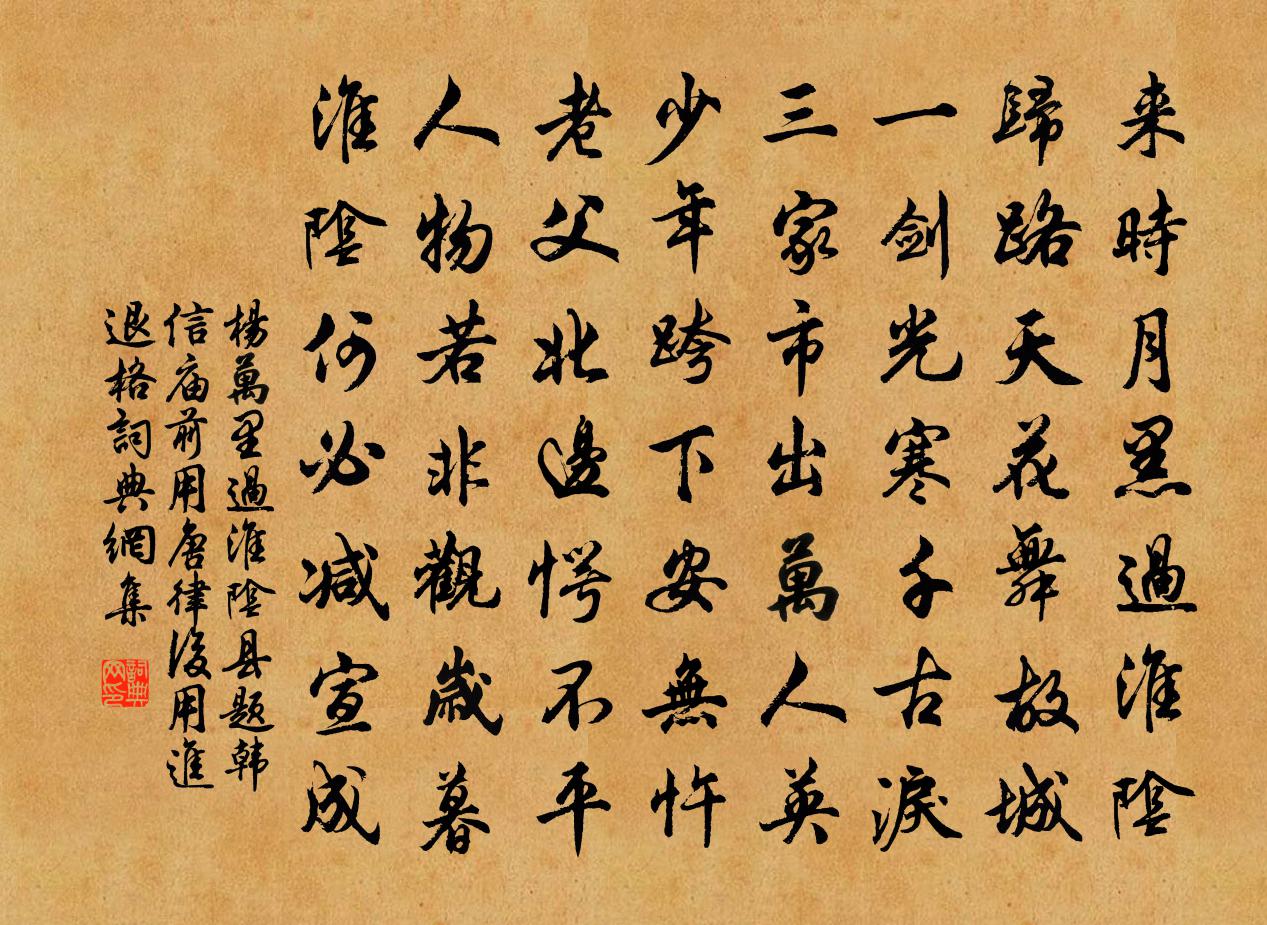 来時月黑過淮陰
歸路天花舞故城
一劍光寒千古淚
三家市出萬人英
少年跨下安無忤
老父圯邊愕不平
人物若非觀歲暮
淮陰何必减宣成
楊萬里過淮陰县题韩
信庙前用唐律後用進
退格詞典網集
詞典
网印